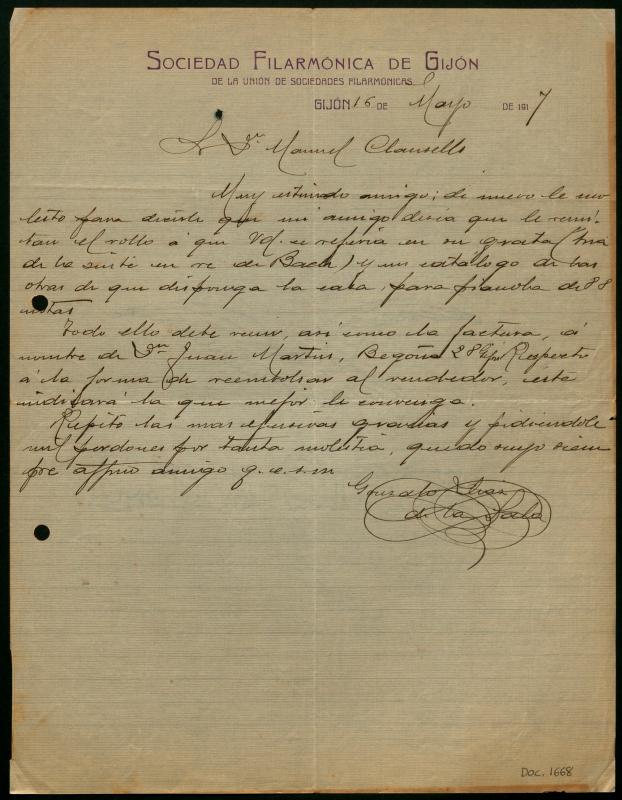 SOCIEDAD FILARMÓNICA DE GIJÓN
DE LA UNIÓN DE SOCIEDADES FILARMÓNICAS
GIJÓN 16 DE Mayo DE 1917
Sr. Dn. Manuel Clausells
Muy estimado amigo; de nuevo le mo-
lesto para decirle que mi amigo desea que le remi-
tan el rollo á que Vd. se referia en su grata (Aria
de la suite en re de Bach) y un catálogo de las
otras de que disponga la casa, para pianola de 88
notas
Todo ello debe venir, así como la factura, á
nombre de Dn Juan Martín, Begoña 28 Gijon Respecto
á la forma de reembolsar al vendedor, éste
indicará la que mejor le convenga.
Repito las mas efusivas gracias y pidiendole
mil perdones por tanta molestia, quedo suyo siem
pre affmo amigo q. e. s. m
Gonzalo
de la Sala
DOC. 1668